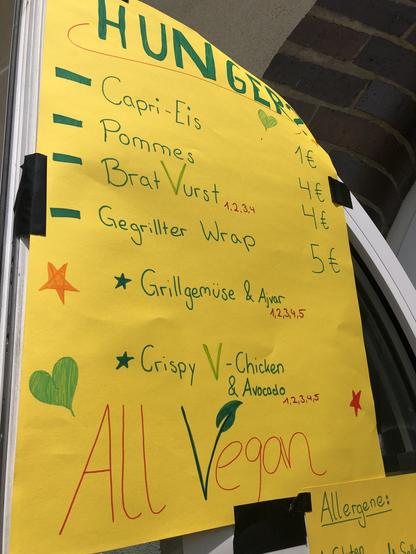 HUNGER?
Capri-Eis 1€
Pommes 4€
BratVurst 1,2,3,4 4€
Gegrillter Wrap 5€
Grillgemüse & Ajvar
1,2,3,4,5
Crispy V-Chicken
& Avocado
1,2,3,4,5
All Vegan
Allergene: